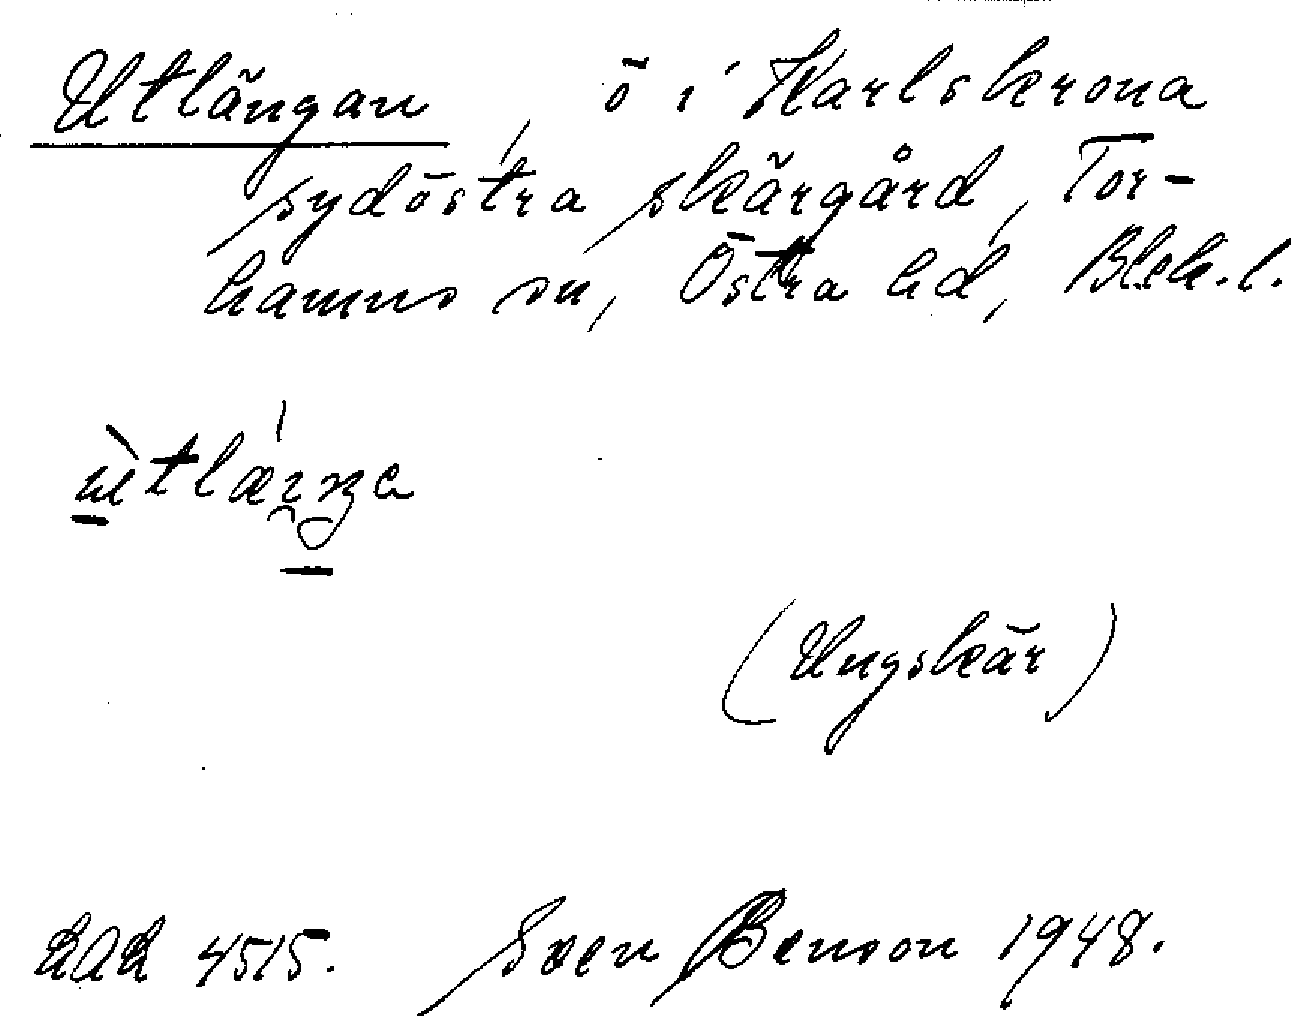 Utlängan, ö i Karlskrona
sydöstra skärgård, Tor-
hamns sn, Östra hd, Blek. l.
(Ungskär)
LAL 4515. Sven Benson 1948.